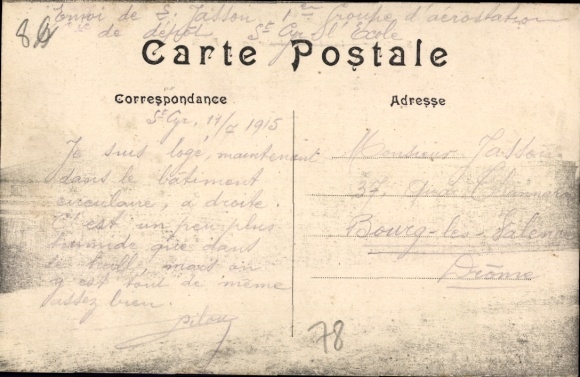 80
Envoi de S. Jasson, 1er Groupe d'aérostation
de dépôt St Cyr l'Ecole
Carte Postale
Correspondance
Adresse
St Cyr, 1915
Je suis logé, maintenant
dans le bâtiment
circulaire, à droite.
C'est un peu plus
humide que dans
le hall, mais on
y est tout de même
assez bien.
Pilou
Monsieur Jasson
37,
Bourg-les-Valence
Drôme
78